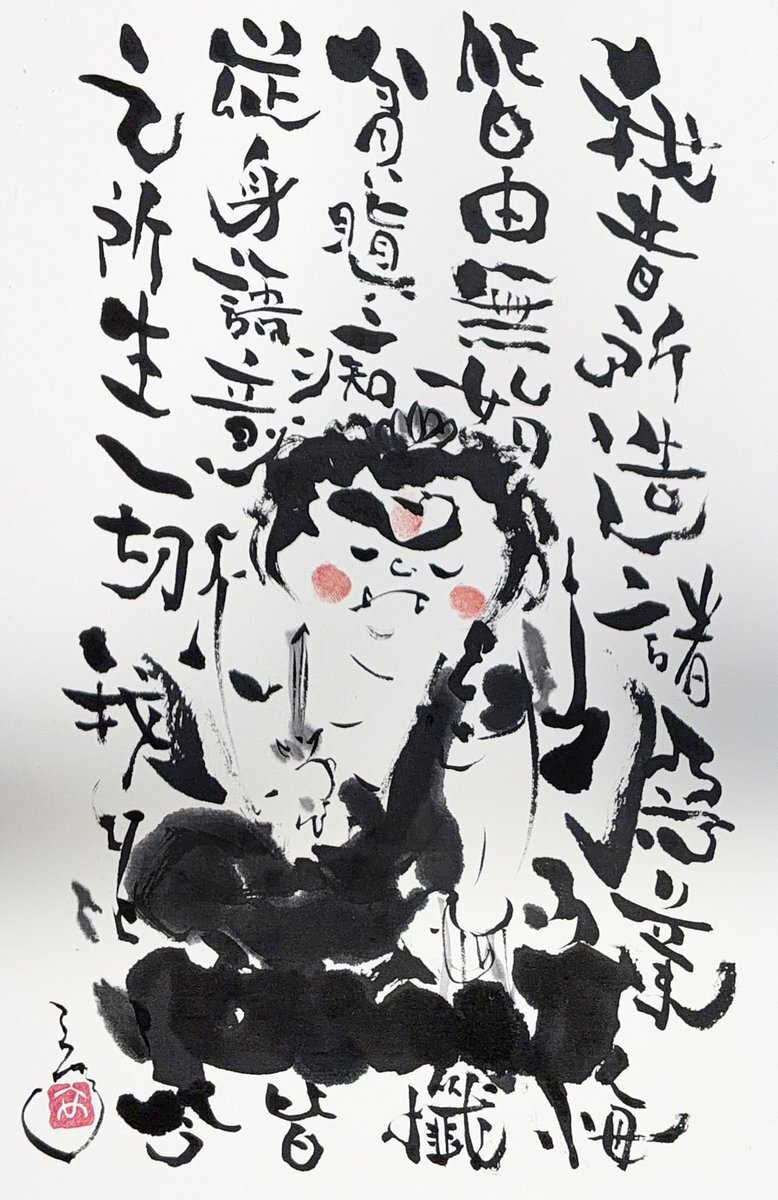 我昔所造諸悪業
皆由無始
貪瞋痴
従身語意
之所生一切我
今皆懺悔